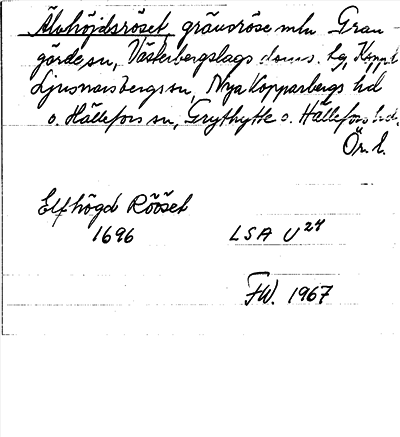 Älvhöjdsröset, gränsröse mln Gran-
gärde sn, Västerbergslags doms. hg, Koppb l
Ljusnarsbergs sn, Nya Kopparbergs hd
o. Hällefors sn, Grythytte o. Hällefors hd,
Ör. l.
Elfhögd Rööset
1696
LSA U24
FW. 1967